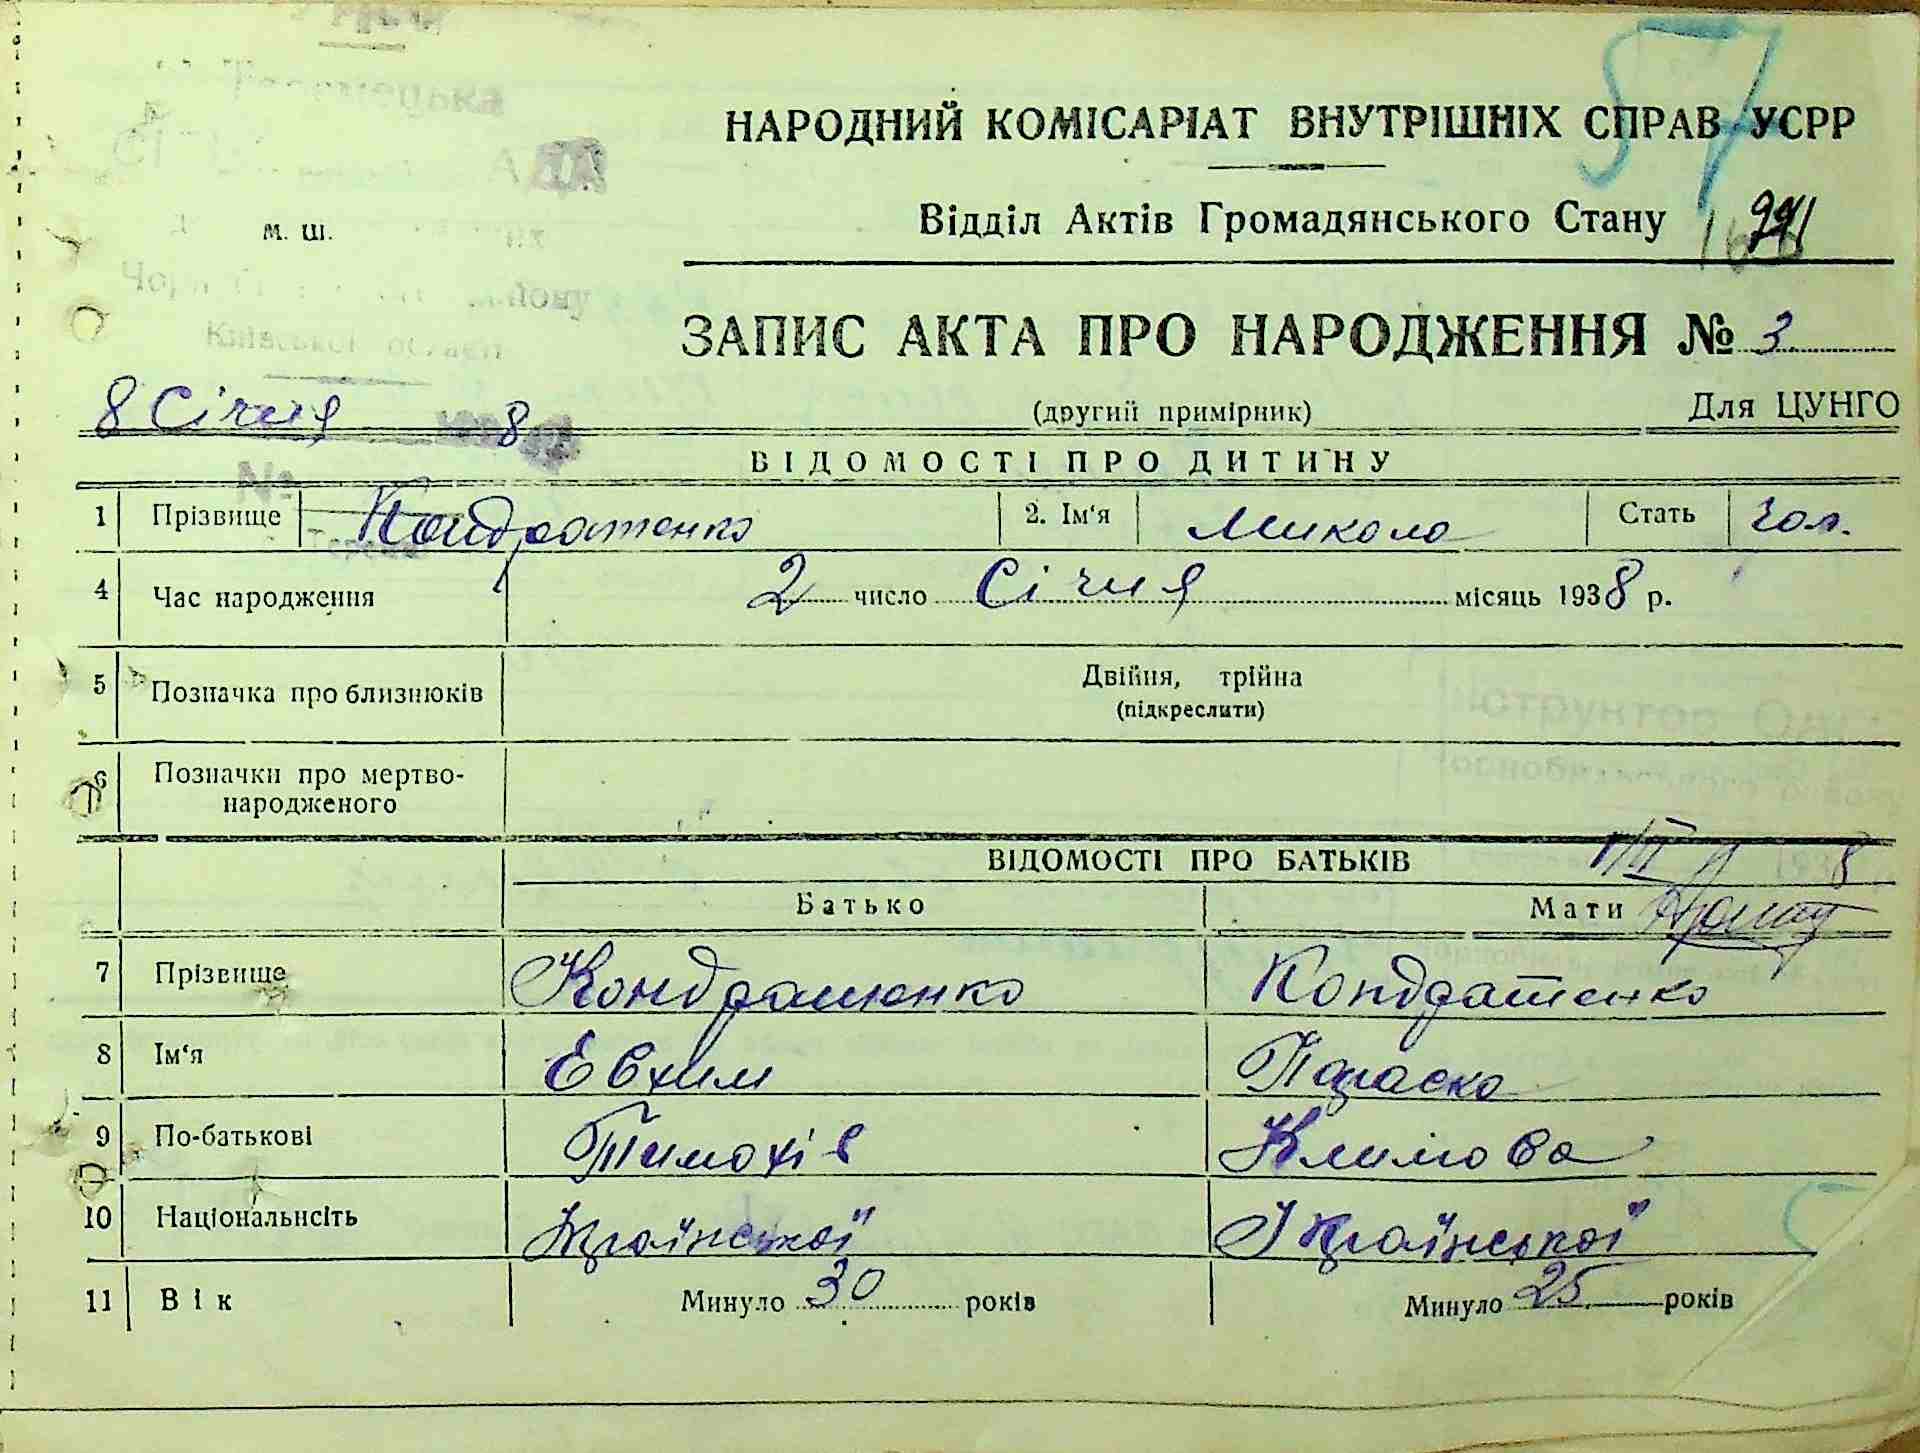 57
НАРОДНИЙ КОМІСАРІАТ ВНУТРІШНІХ СПРАВ УСРР
Відділ Актів Громадянського Стану
м. ш.
ЗАПИС АКТА ПРО НАРОДЖЕННЯ № 3
8 Січня 8
(другий примірник) Для ЦУНГО
ВІДОМОСТІ ПРО ДИТИНУ
1 Прізвище Кондратенко 2. Ім'я Микола Стать чол.
4 Час народження 2 число Січня місяць 1938 р.
5 Позначка про близнюків Двійня, трійна
(підкреслити)
6 Позначки про мертво-
народженого
ВІДОМОСТІ ПРО БАТЬКІВ 1938
Батько Мати
7 Прізвище Кондратенко Кондратенко
8 Ім'я Евхим Параска
9 По-батькові Тимохів Климова
10 Національнсіть Української Української
11 Вік Минуло 30 років Минуло 25 років